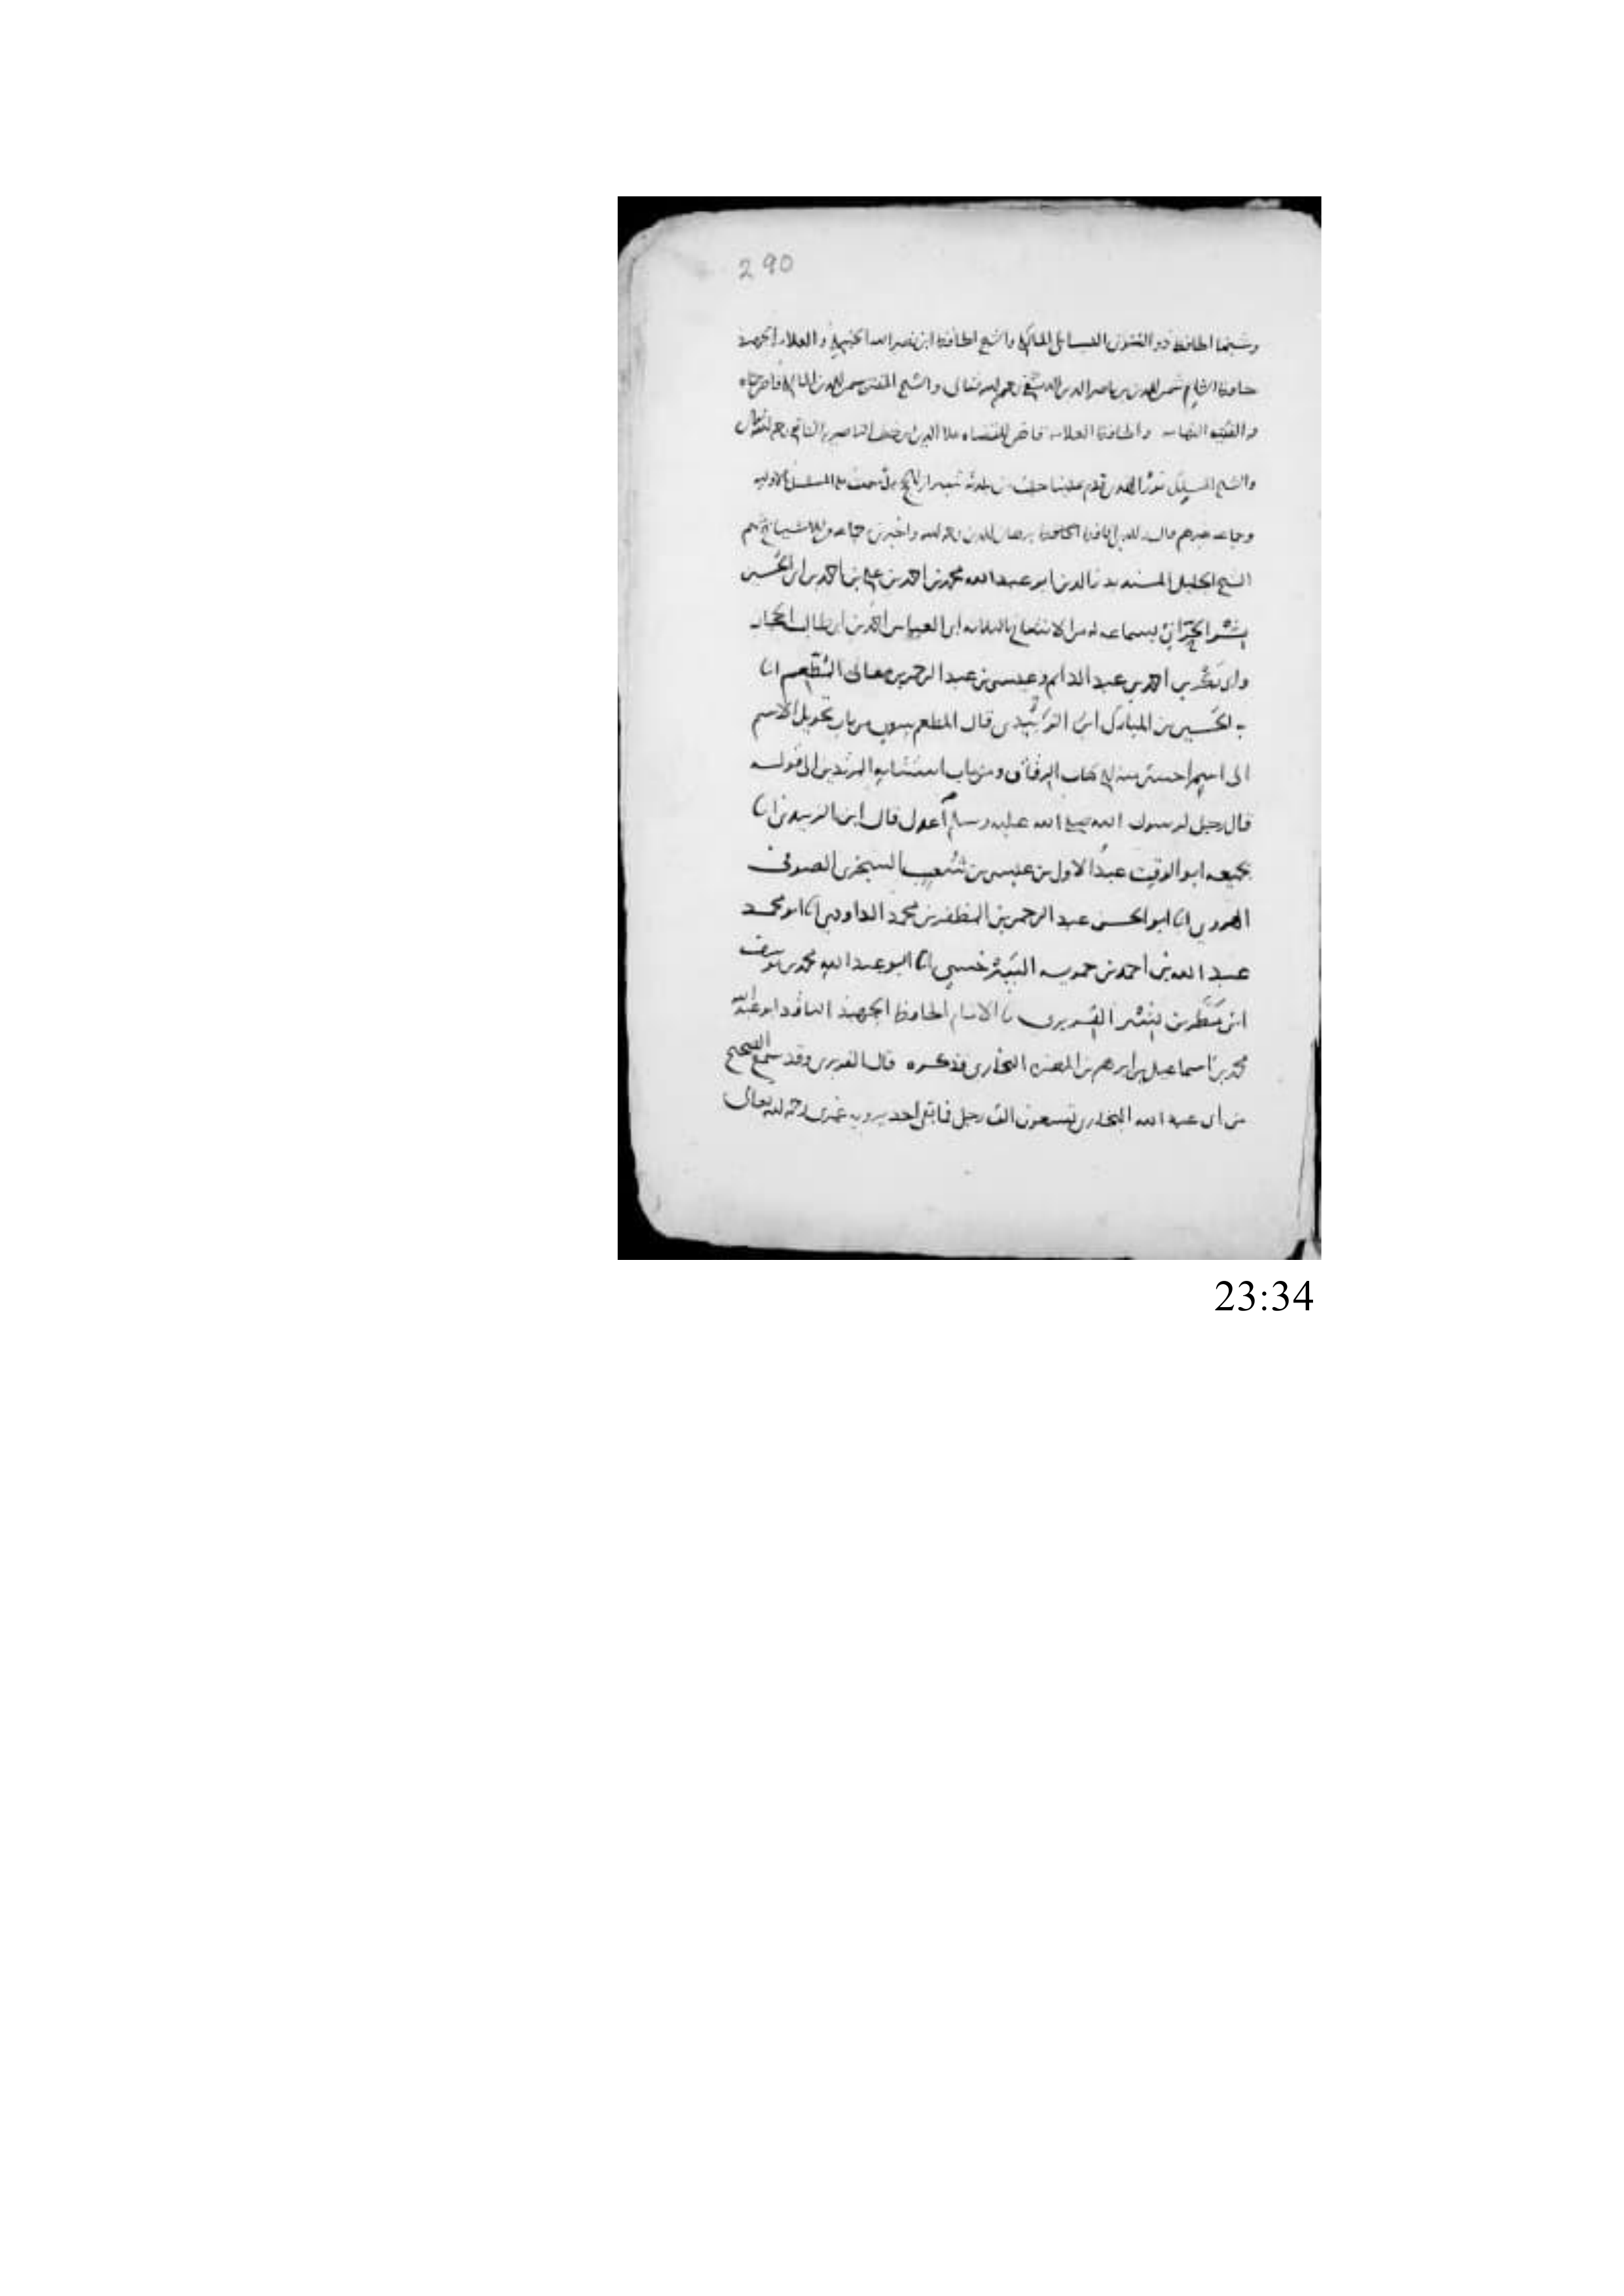 290
وشيخنا الحافظ ذو الفنون البساطي المالكي والشيخ الحافظ ابن نصر الله الحنبلي والعلامة الجهبذ
حافظ الشام شمس الدين بن ناصر الدين الدمشقي رحمهم الله تعالى والشيخ شمس الدين المالكي قاضي حماه
والحافظ العلامة قاضي القضاة علا الدين بن خطيب الناصرية الشافعي
والشيخ نور الدين قدم علينا حلب من
وجماعة غيرهم قال الحافظ برهان الدين رحمه الله واخبرني جماعة من الاشياخ منهم
الشيخ الجليل المسند بدر الدين ابو عبد الله محمد بن احمد بن علي بن احمد بن ابي الحسن
بشر الحراني بسماعه له من الاشياخ الثلاثة ابي العباس احمد بن ابي طالب الحجار
وابي بكر بن احمد بن عبد الدائم وعيسى بن عبد الرحمن بن معالي المطعم انا
به الحسين بن المبارك ابن الزبيدي قال المطعم سوى من باب تحويل الاسم
الى اسم احسن منه الى كتاب الرقاق ومن باب استتابة المرتدين الى قوله
قال رجل لرسول الله صلى الله عليه وسلم أعدل قال ابن الزبيدي انا
بجميعه ابو الوقت عبد الاول بن عيسى بن شعيب السجزي الصوفي
الهروي انا ابو الحسن عبد الرحمن بن المظفر بن محمد الداودي انا ابو محمد
عبد الله بن احمد بن حمويه السرخسي انا ابو عبد الله محمد بن يوسف
ابن مطر بن بشر الفربري نا الامام الحافظ الجهبذ الناقد ابو عبد الله
محمد بن اسماعيل بن ابرهيم بن المغيرة البخاري فذكره قال الفربري وقد سمع الصحيح
من ابي عبد الله البخاري تسعون الف رجل فما بقي احد يرويه غيري رحمه الله تعالى
23:34